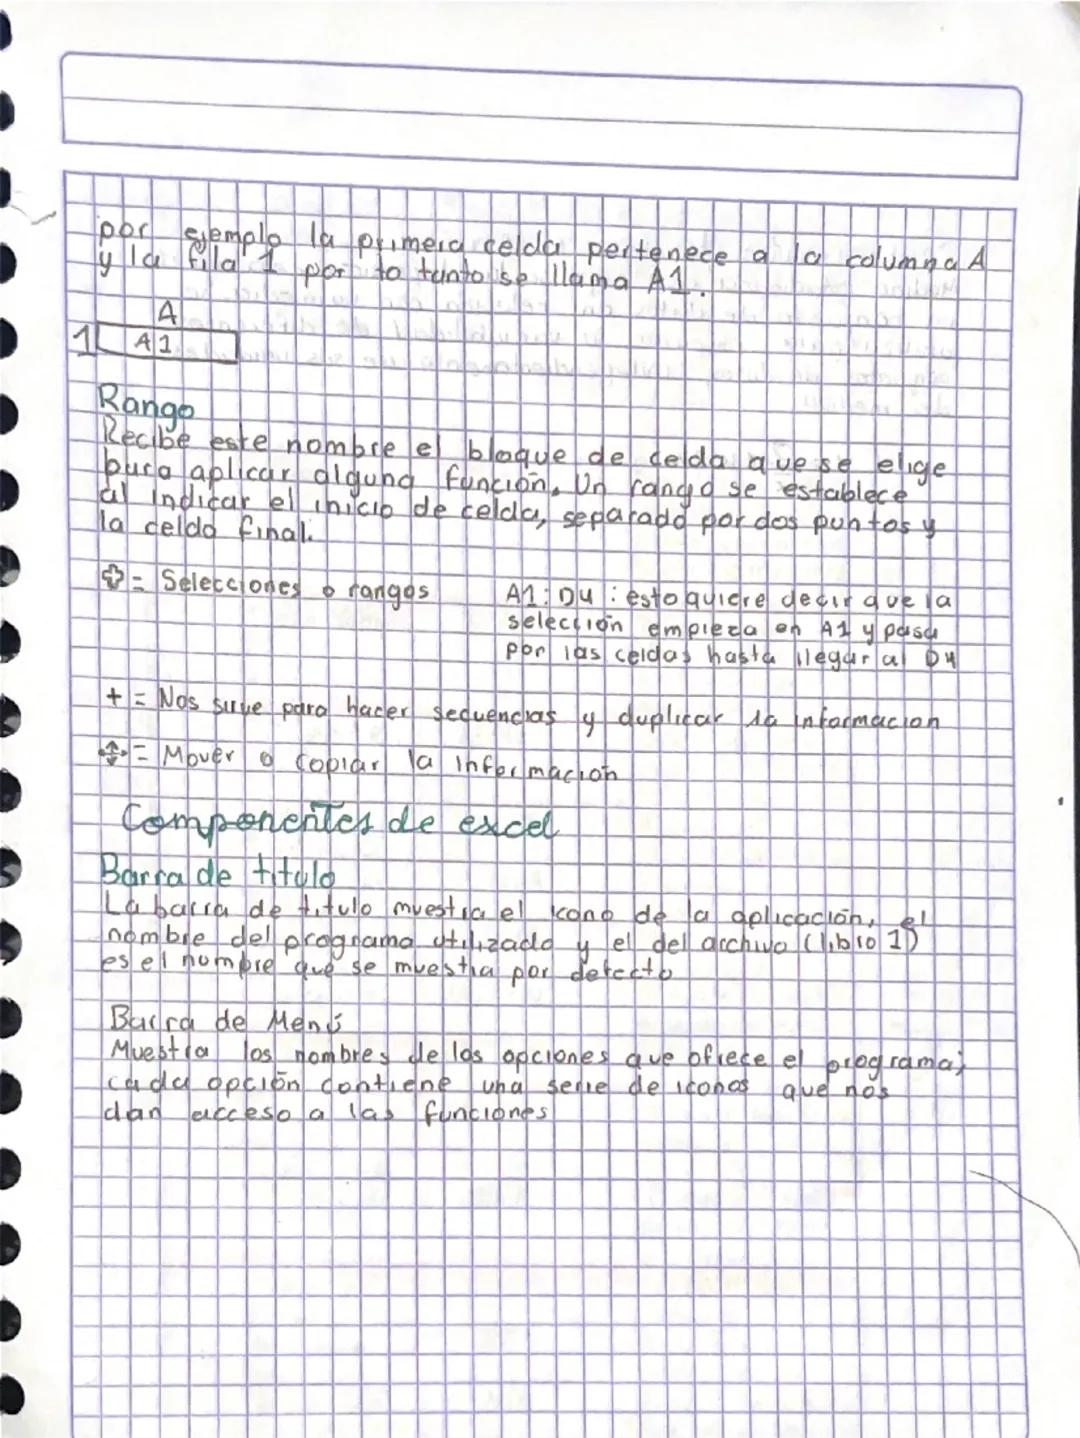 por ejemplo la primera celda pertenece a la columna A
y la fila 1 por lo tanto se llama A1.
A
1 A1
Rango
Recibe este nombre el bloque de celda que se elige
para aplicar alguna función. Un rango se establece
al indicar el inicio de celda, separado por dos puntos y
la celda final.
= Selecciones o rangos
A1:D4: esto quiere decir que la
selección empieza en A1 y pasa
por las celdas hasta llegar al D4
+ = Nos sirve para hacer secuencias y duplicar la informacion
= Mover o copiar la información
Componentes de excel
Barra de titulo
La barra de titulo muestra el icono de la aplicación, el
nombre del programa utilizado y el del archivo (libro 1)
es el nombre que se muestra por defecto
Barra de Menú
Muestra los nombres de las opciones que ofrece el programa;
cada opción contiene una serie de iconos que nos
dan acceso a las funciones